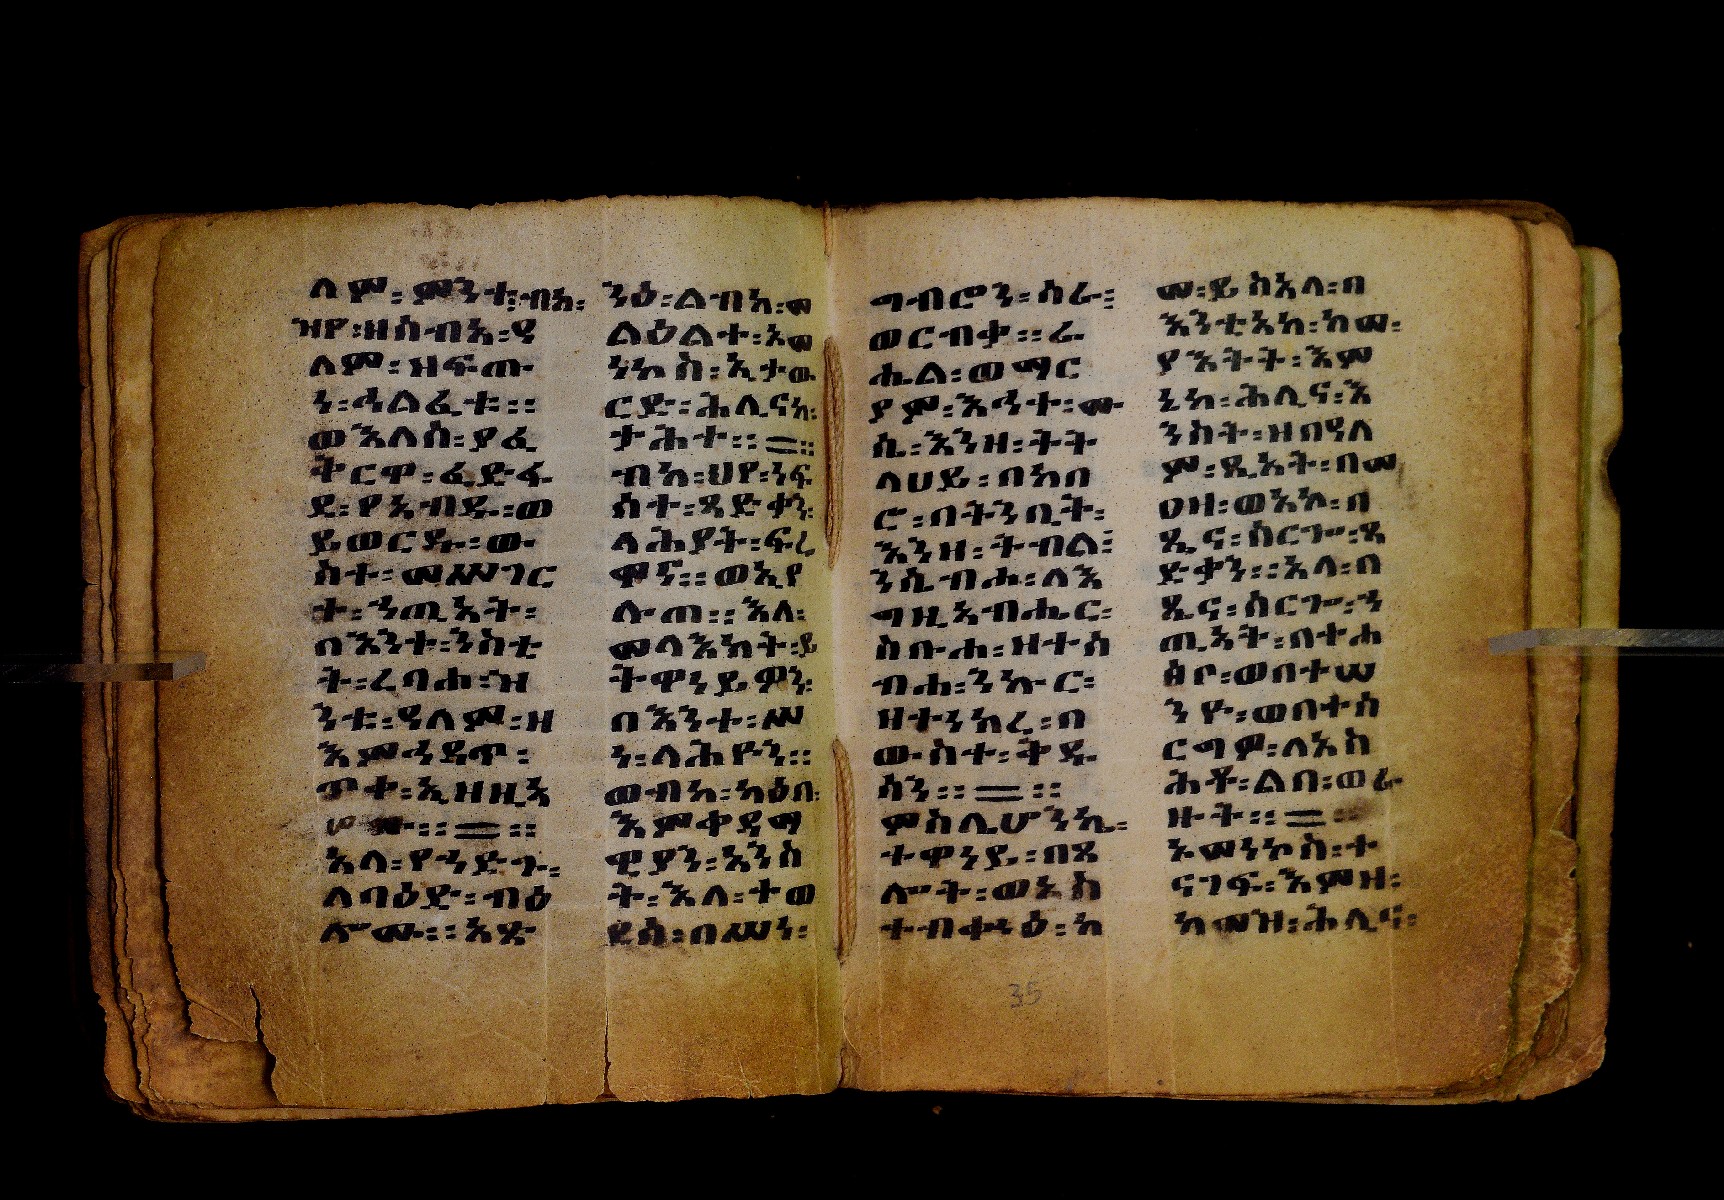 ለም፡ምንተ፡ብእ፡
ዝየ፡ዘስብእ፡ዓ
ለም፡ዝፍጡ
ን፡ኃልፊተ።
ወእለሰ፡ያፈ
ትርዋ፡ፈድፋ
ደ፡የአብዱ፡ወ
ይወርዱ፡ው
ስተ፡መሥገር
ተ፡ንጢአት፡
በእንተ፡ንስቲ
ት፡ረባሐ፡ዝ
ንቱ፡ዓለም፡ዘ
እምኃዳጥ፡
ጥቀ፡ኢዘዚአ
ሆሙ። = ።
አላ፡የኀድጉ፡
ለባዕድ፡ብዕ
ሎሙ።አድ
ንዕ፡ልብከ፡መ
ልዕልተ፡አመ
ነኮስ፡ኢታው
ርድ፡ሕሊናከ፡
ታሕተ። = ።
ብእ፡ህየ፡ነፍ
ስተ፡ጻድቃን፡
ላሕያት፡ፍሪ
ዋኗ።ወኢየ
ሉጠ።እለ፡
መላእክት፡ይ
ትዋነይዎን፡
በእንተ፡ሥ
ነ፡ላሕዮን።
ወብከ፡ካዕበ፡
እምቀዳማ
ዊያን፡አንስ
ት፡እለ፡ተወ
ደሳ፡በሥነ፡
ግብሮን፡ሳራ፡
ወርብቃ።ራ
ሔል፡ወማር
ያም፡እኅተ፡ሙ
ሴ፡እንዘ፡ትት
ላህይ፡በከበ
ሮ፡በትንቢት፡
እንዘ፡ትብል፡
ንሴብሖ፡ለእ
ግዚአብሔር፡
ስቡሐ፡ዘተሰ
ብሐ፡ንኡር፡
ዘተነክረ፡በ
ውስተ፡ቅዱ
ሳን። = ።
ምስሌሆንኬ፡
ተዋነይ፡በጸ
ሎት፡ወኢስ
ተብቀንዕ፡ከ
መ፡ይስአላ፡በ
እንቲአከ፡ከመ፡
ያእትት፡እም
ኔከ፡ሕሊና፡እ
ንስት፡ዝበዓለ
ም፡ጼአት፡በመ
ዐዛ፡ወእኮ፡በ
ጼና፡ስርጉ፡ጻ
ድቃን።አላ፡በ
ጼና፡ስርጉ፡ኀ
ጢአት፡በተሐ
ፅቦ፡ወበተሠ
ንዮ፡ወበተሰ
ርግዎ፡ለአስ
ሕቶ፡ልበ፡ወሬ
ዙት። = ።
ኦመነኮስ፡ተ
ናገፍ፡እምዘ፡
ከመዝ፡ሕሊና፡
35